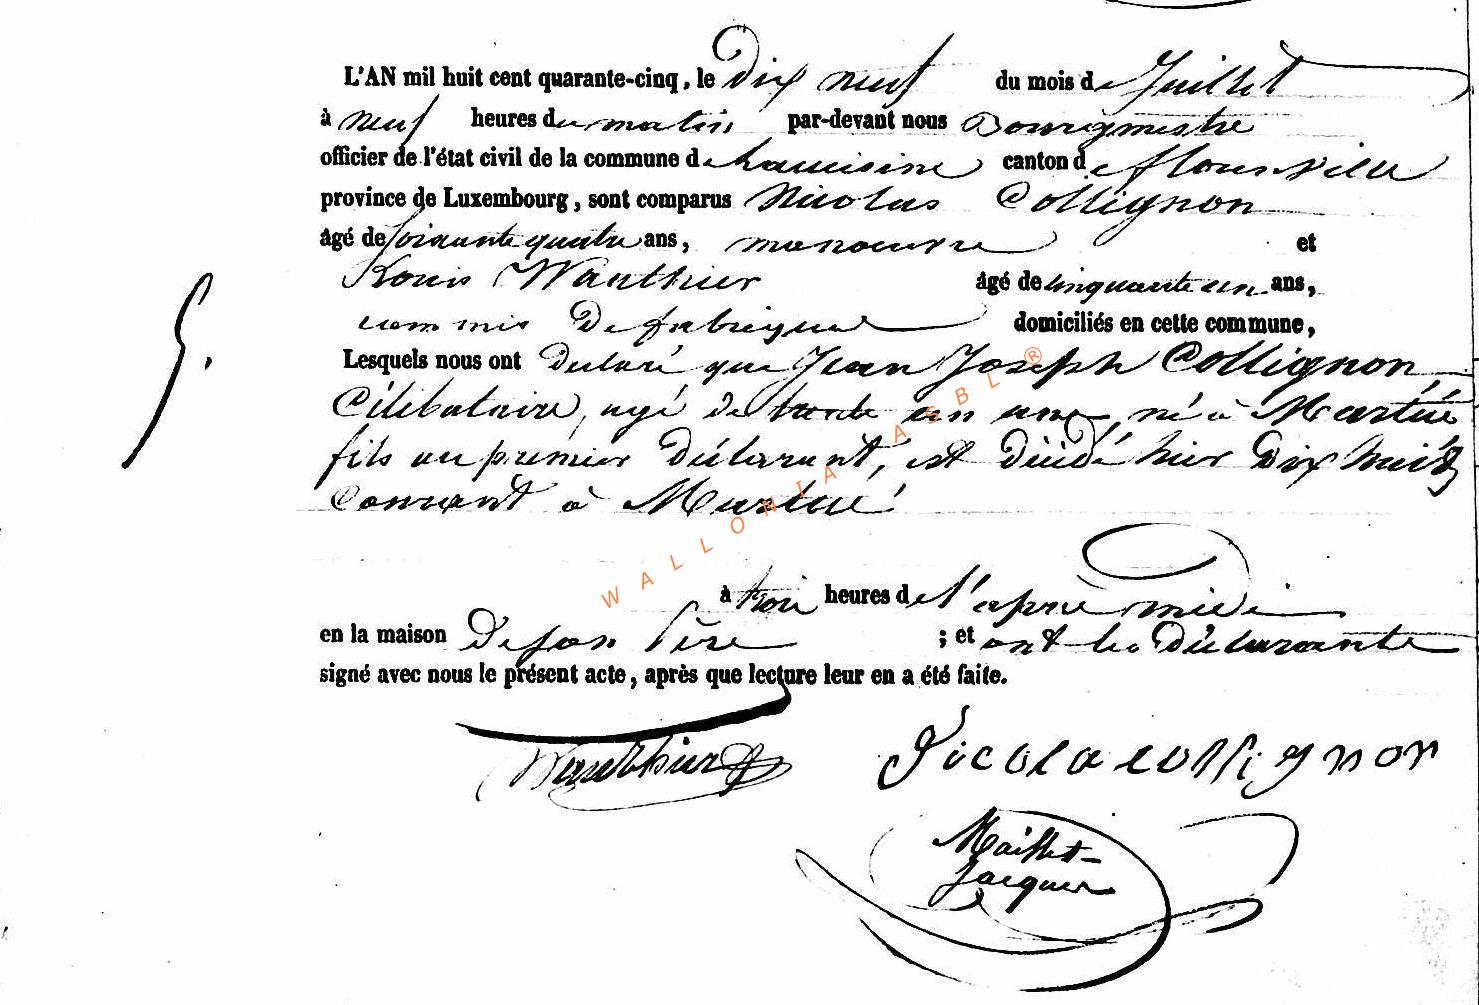 L'AN mil huit cent quarante-cinq, le Dix neuf du mois de Juillet
à neuf heures du matin par-devant nous Bourgmestre
officier de l'état civil de la commune de Lacuisine canton de florenville
province de Luxembourg, sont comparus Nicolas Collignon
âgé de soixante quatre ans, manoeuvre et
Louis Wauthier âgé de cinquante un ans,
commis De fabrique domiciliés en cette commune,
Lesquels nous ont Déclaré que Jean Joseph Collignon
Célibataire, agé de trente un ans, né à Martué
5.
fils au premier Déclarant, est Décédé hier Dix huit
Courant à Martué
WALLONIA ASBL ®
à trois heures de l'après midi
en la maison De son Père ; et ont les Déclarants
signé avec nous le présent acte, après que lecture leur en a été faite.
Wauthier Nicola collignon
Maillet-
Jacques